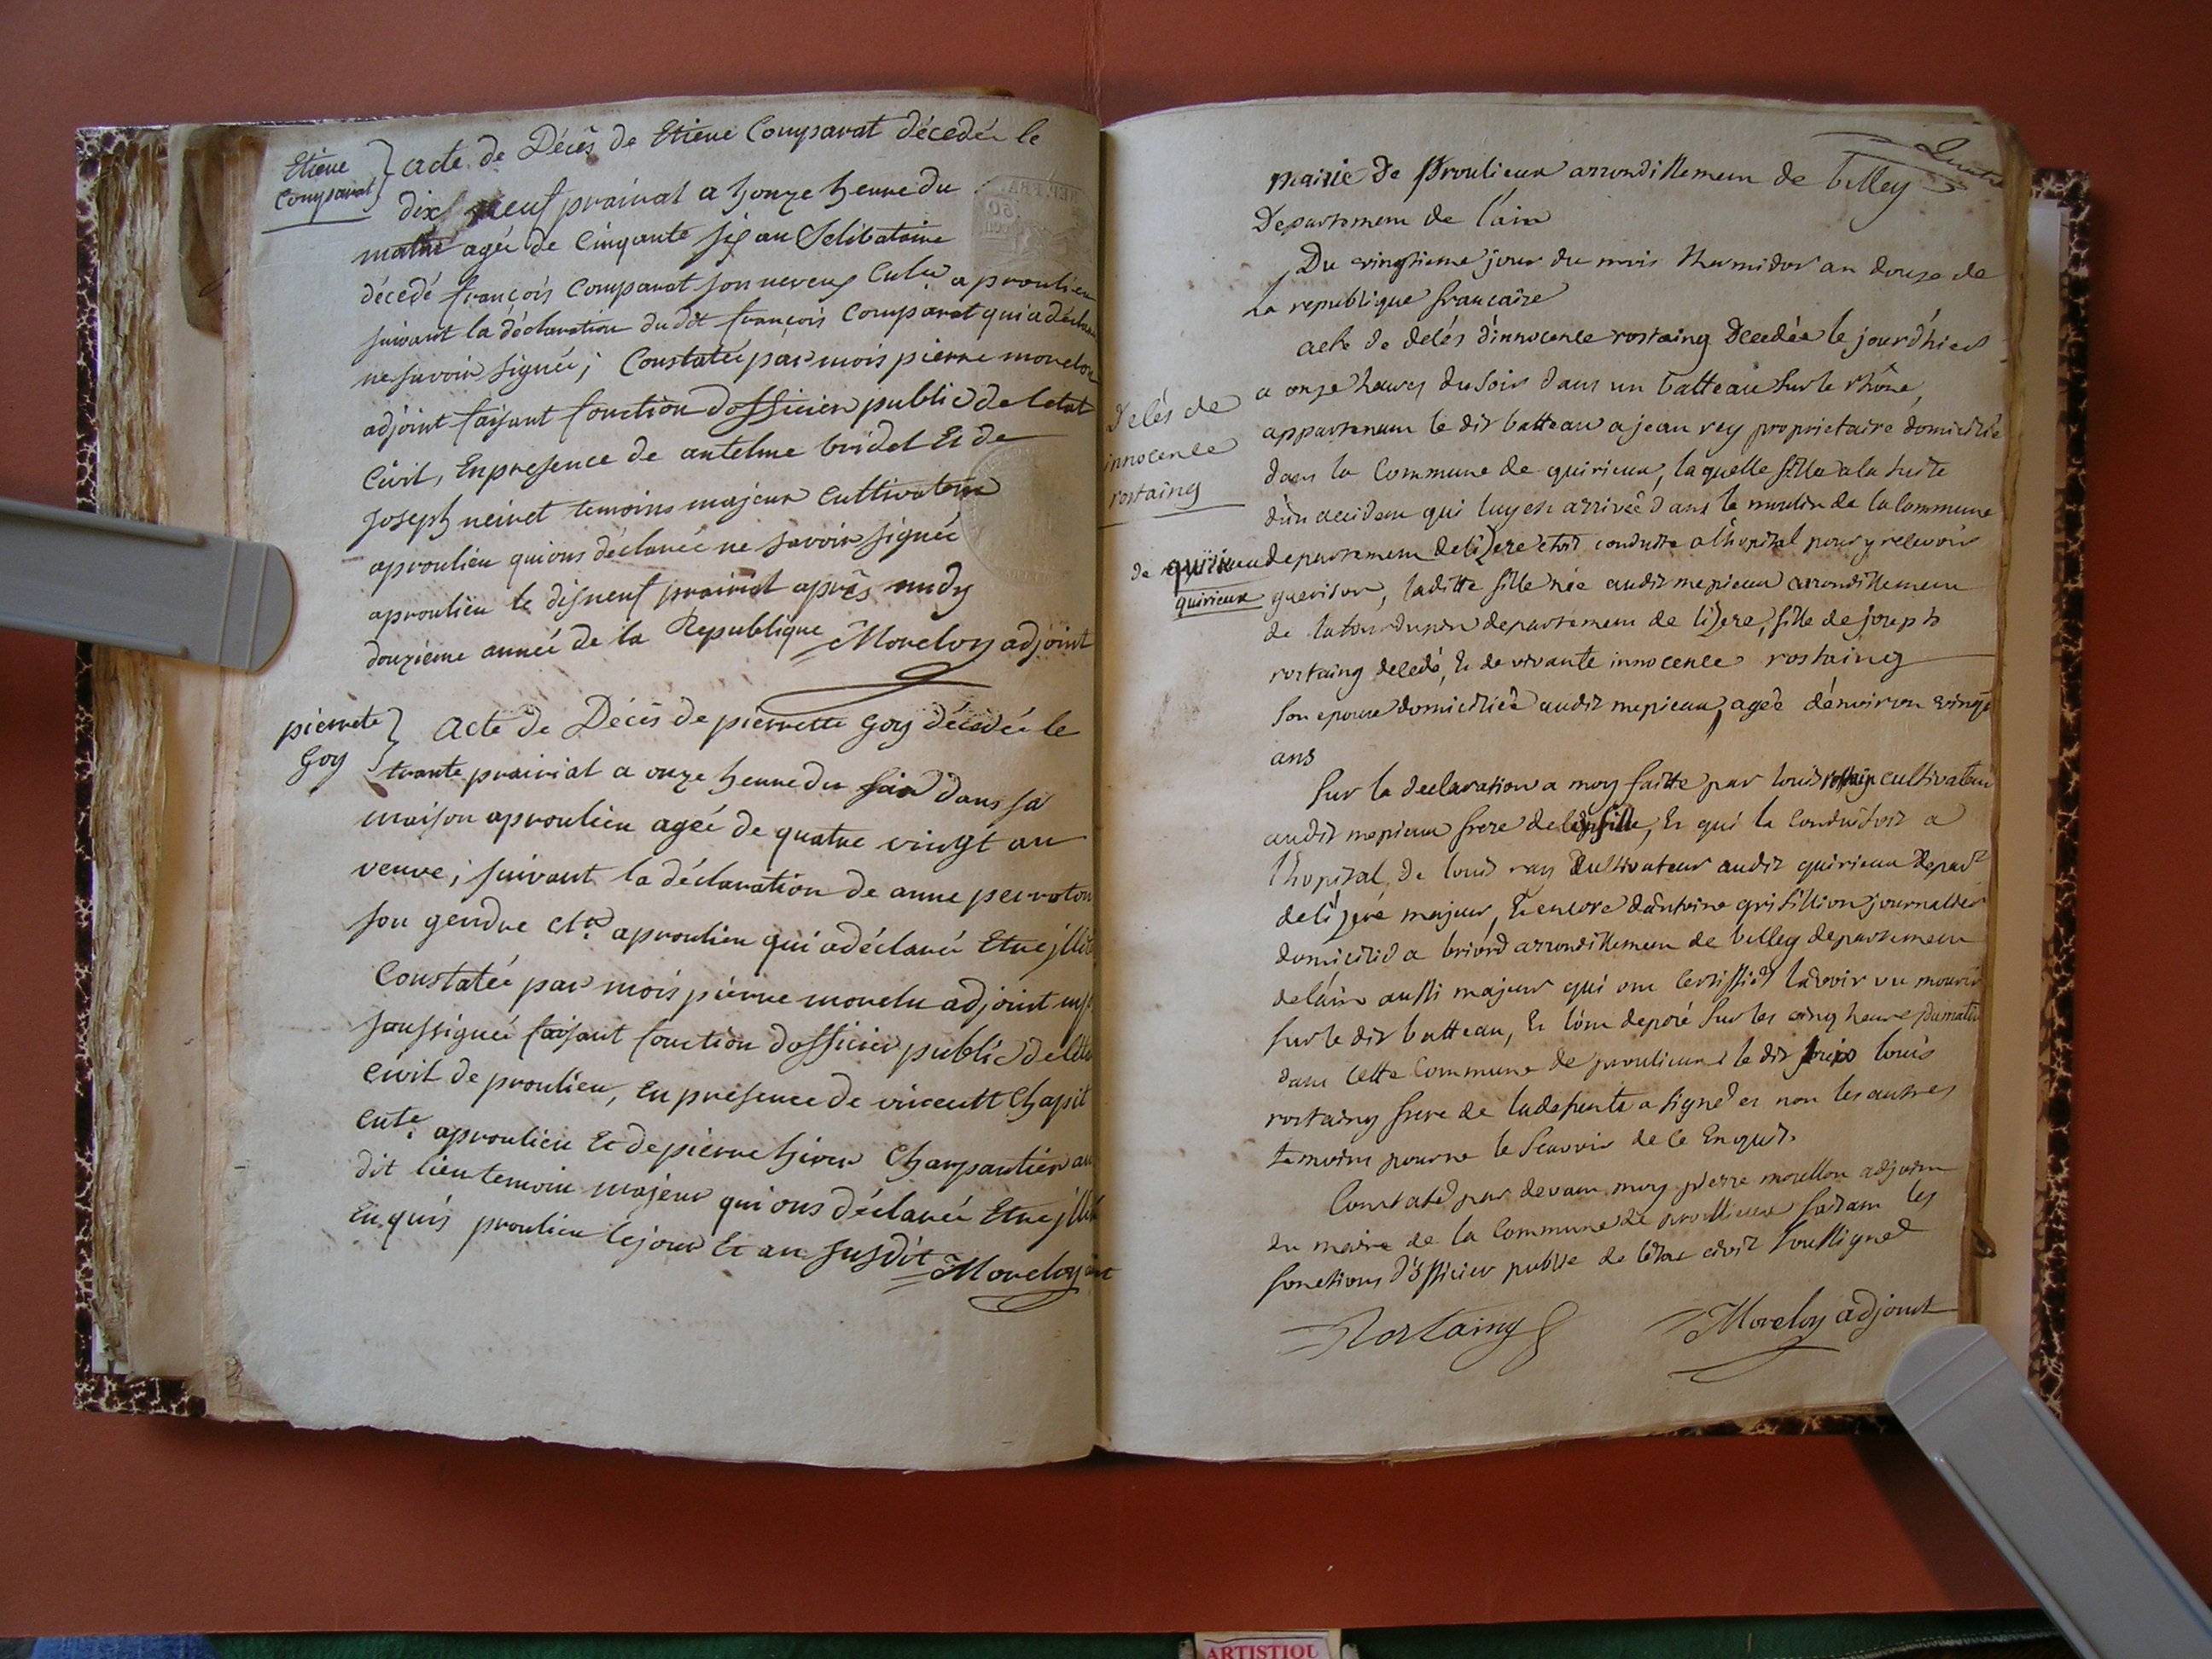 Etiene
Comparat
acte de Décês de Etiene Comparat décedée le
dix neuf prairial a honze heure du
matin agée de Cinqante six an Selibataire
décedé françois Comparat son neveux Culu a proulieu
suivant la déclaration dudit françois Comparat qui a déclaré
ne savoir signée ; Constatée par mois pierre morelon
adjoint faisant fonction dofficier public de letat
Civil, En presence de antelme bridet Et de
Joseph neinet temoins majeur Cultivateur
aproulieu quions déclarée ne savoir signée
aproulieu le disneuf prairial après midy
douzieme année de la Republique Morelon adjoint
pierrete
Goy
Acte de Décês de pierrette Goy décedée le
trante prairial a onze heure du soir dans sa
maison aproulieu agée de quatre vingt an
veuve ; suivant la déclaration de anne perroton
son gendre Clr. aproulieu qui adéclaré Etre jllit
Constatée par mois pierre morelon adjoint
soussignée faisant fonction dofficier public de letat
civil de proulieu, En presence de vincentt Chapit
Cult. aproulieu Et de pierre hiver Charpantier au
dit lieu temoin majeur qui ons déclarée Etre jllité
enquis proulieu le jour Et an susdit Morelon
mairie de Proulieux arrondissement de belley
Departement de l'ain
Du vingtieme jour du mois thermidor an douze de
La republique francaise
acte de decés d'innocence rostaing Decedée le jour d'hier
a onze heures du soir dans un batteau sur le rhône,
appartenant le dit batteau a jean rey proprietaire domicilié
Decés de
innocence
rostaing
dans la Commune de quirieux, laquelle fille a la suite
d'un accident qui luy est arrivée dans le moulin de la Commune
de quirieu departement de lizere etoit conduitte a lhopital pour y recevoir
quirieux
guerison, laditte fille née audit mepieux arrondissement
de latourdupin departement de lizere, fille de joseph
rostaing decedé, Et de vivante innocence rostaing
son epouse domiciliée audit mepieux, ageé d'environ vingt
ans
Sur la declaration a moy faitte par louis rostaing cultivateur
audit mepieux frere de la fille, Et qui la Conduisoit a
l'hopital, de louis ray Cultivateur audit quirieux Depart
de lizere majeur, Et encore d'antoine grisillion journallier
domicilié a briord arrondissement de belley departement
de lain aussi majeur qui ont Certiffiés lavoir vu mourir
sur le dit batteau, Et lont deposé sur les cinq heure du matin
dans cette Commune de proulieux le dit louis
rostaing frere de la defunte a signé et non les autres
temoins pour ne le Scavoir de ce Enquis.
Constaté par devant moy pierre morellon adjoint
du maire de la Commune de proullieux faisant les
fonctions d'officier public de letat civil soussigned
Rostaing Morelon adjoint
ARTISTIQU